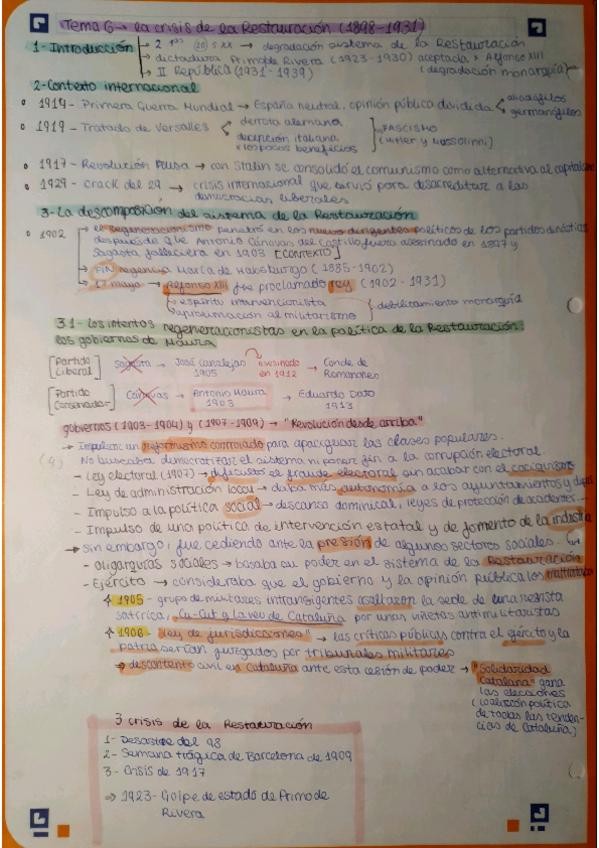 Tema 6 → la crisis de la Restauración (1898-1931)
1- Introducción → 2 1ºs (20) s XX → degradación sistema de la Restauración
→ dictadura Primo de Rivera (1923-1930) aceptada x Alfonso XIII
→ II República (1931-1939) (degradación monarquía)
2- Contexto internacional
1914- Primera Guerra Mundial → España neutral, opinión pública dividida < aliadófilos
germanófilos
1919- Tratado de Versalles < derrota alemana
decepción italiana
x los pocos beneficios
FASCISMO
(Hitler y Mussolini)
1917- Revolución Rusa → con Stalin se consolidó el comunismo como alternativa al capitalismo
1929- crack del 29 → crisis internacional que sirvió para desacreditar a las
democracias liberales
3- La descomposición del sistema de la Restauración
1902 → el regeneracionismo penetró en los nuevos dirigentes políticos de los partidos dinásticos
después de que Antonio Cánovas del Castillo fuera asesinado en 1897 y
Sagasta falleciera en 1903 [CONTEXTO]
→ FIN regencia María Ca de Habsburgo (1885-1902)
17 mayo → Alfonso XIII fue proclamado rey (1902-1931)
→ espíritu intervencionista
→ aproximación al militarismo
debilitamiento monarquía
3.1- Los intentos regeneracionistas en la política de la Restauración:
los gobiernos de Maura
[Partido Liberal] Sagasta → José Canalejas 1905 asesinado en 1912 → Conde de Romanones
[Partido Conservador] Cánovas → Antonio Maura 1903 → Eduardo Dato 1913
gobiernos (1903-1904) y (1907-1909) → "Revolución desde arriba"
→ Impulsar un reformismo controlado para apaciguar las clases populares.
(4) No buscaba democratizar el sistema ni poner fin a la corrupción electoral.
- Ley electoral (1907) → dificultó el fraude electoral sin acabar con el caciquismo
- Ley de administración local → daba más autonomía a los ayuntamientos y dipu
- Impulso a la política social → descanso dominical, leyes de protección de accidentes...
- Impulso de una política de intervención estatal y de fomento de la industria
→ sin embargo, fue cediendo ante la presión de algunos sectores sociales.
- oligarquías sociales → basaba su poder en el sistema de la Restauración
- Ejército → consideraba que el gobierno y la opinión pública los maltrataba
1905 - grupo de militares intransigentes asaltaron la sede de una revista
satírica, Cu-Cut y La veu de Cataluña, por unas viñetas antimilitaristas
1906 "ley de jurisdicciones" → las críticas públicas contra el ejército y la
patria serían juzgados por tribunales militares
⇒ descontento civil en Cataluña ante esta cesión de poder → "Solidaridad
Catalana" gana
las elecciones
(coalición política
de todas las tenden-
cias de Cataluña)
3 crisis de la Restauración
1- Desastre del 98
2- Semana trágica de Barcelona de 1909
3- Crisis de 1917
⇒ 1923- Golpe de estado de Primo de
Rivera